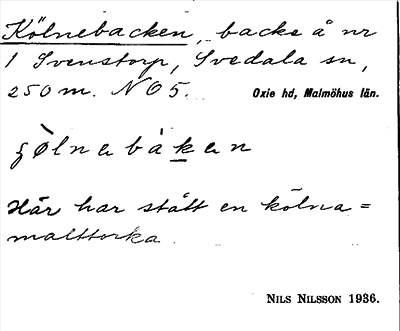 Kölnebacken, backe å nr
1 Svenstorp, Svedala sn,
250 m. NO 5. Oxie hd, Malmöhus län.
Här har stått en kölna=
malttorka.
NILS NILSSON 1936.